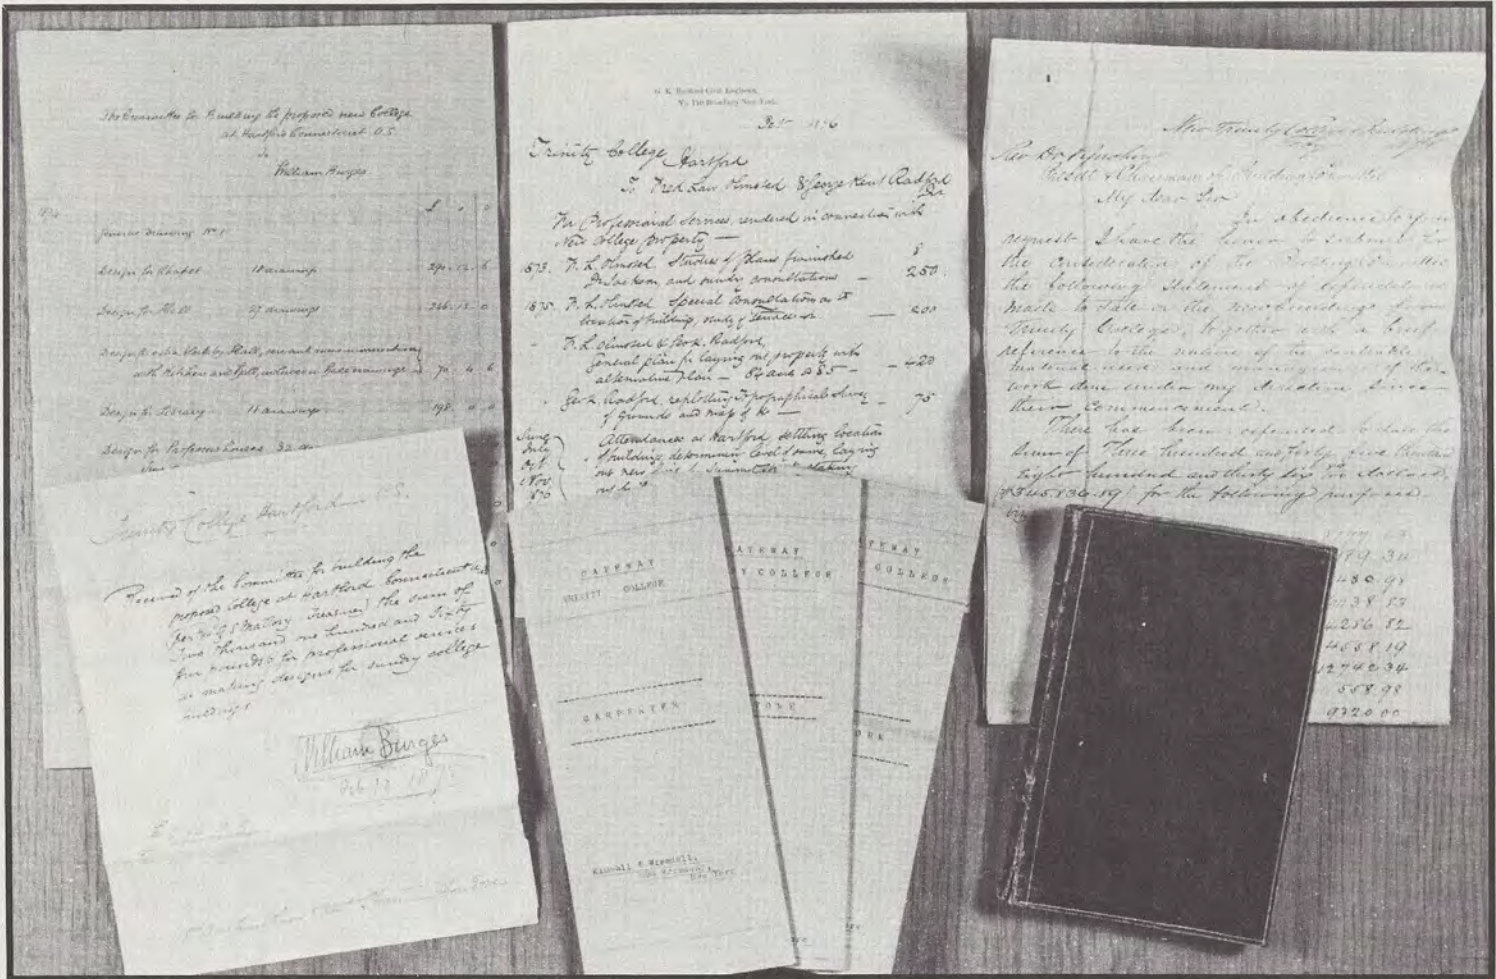 The Committee for Building the proposed new College
at Hartford Connecticut U.S.
To
William Burges
£ s d
General drawing No 1
Design for Chapel 18 drawings 290 . 12 . 6
Design for Hall 27 drawings 246 . 15 . 0
with Kitchen and 70 . 4 . 6
Design for Library 16 drawings 198 . 0 . 0
Design for Professors houses 32
Trinity College Hartford U.S.
Received of the Committee for building the
proposed College at Hartford Connecticut U.S.
(per Mr G S Mallory Treasurer) the sum of
Two thousand one hundred and sixty
four pounds for professional services
in making designs for sundry college
buildings
William Burges
Feb 13 1875
G. K. Radford Civil Engineer,
New York.
1876
Trinity College Hartford
To Fred Law Olmsted & George Kent Radford
Dr.
For Professional Services, rendered in connection with
New College property —
$
1873. F. L. Olmsted. Studies of plans furnished
Dr Jackson, and sundry consultations — 250.
1875 F. L. Olmsted Special Consultation as to
location of building, study of terrace — 200
" F. L. Olmsted & Geo K. Radford,
General plan for laying out property with
alternative plan — 84 acres @ $5 — 420
" Geo K. Radford, replotting Topographical Survey
of grounds and map of — 75
June
July
Oct
Nov
1876
Attendances at Hartford, settling location
of building, determining level of same, laying
out new line to Summit St staking
out
GATEWAY
TRINITY COLLEGE
CARPENTER
Kimball & Wisedell,
New York
ATEWAY
Y COLLEGE
TONE
ATEWAY
Y COLLEGE
ORK
New Trinity College Buildings
Rev Dr Pynchon
Presdt & Chairman of Building Committee
My dear Sir
In obedience to your
request I have the honor to submit for
the consideration of the Building Committee
the following statement of expenditures
made to date on the new buildings for
Trinity College, together with a brief
reference to the nature of the contracts
material used and management of the
work done under my direction since
their commencement.
There has been expended to date the
sum of Three hundred and forty five thousand
eight hundred and thirty six dollars
$345,836.89 for the following purposes
89.34
480.98
38.83
4286.82
4558.19
12742.34
558.98
9720.00